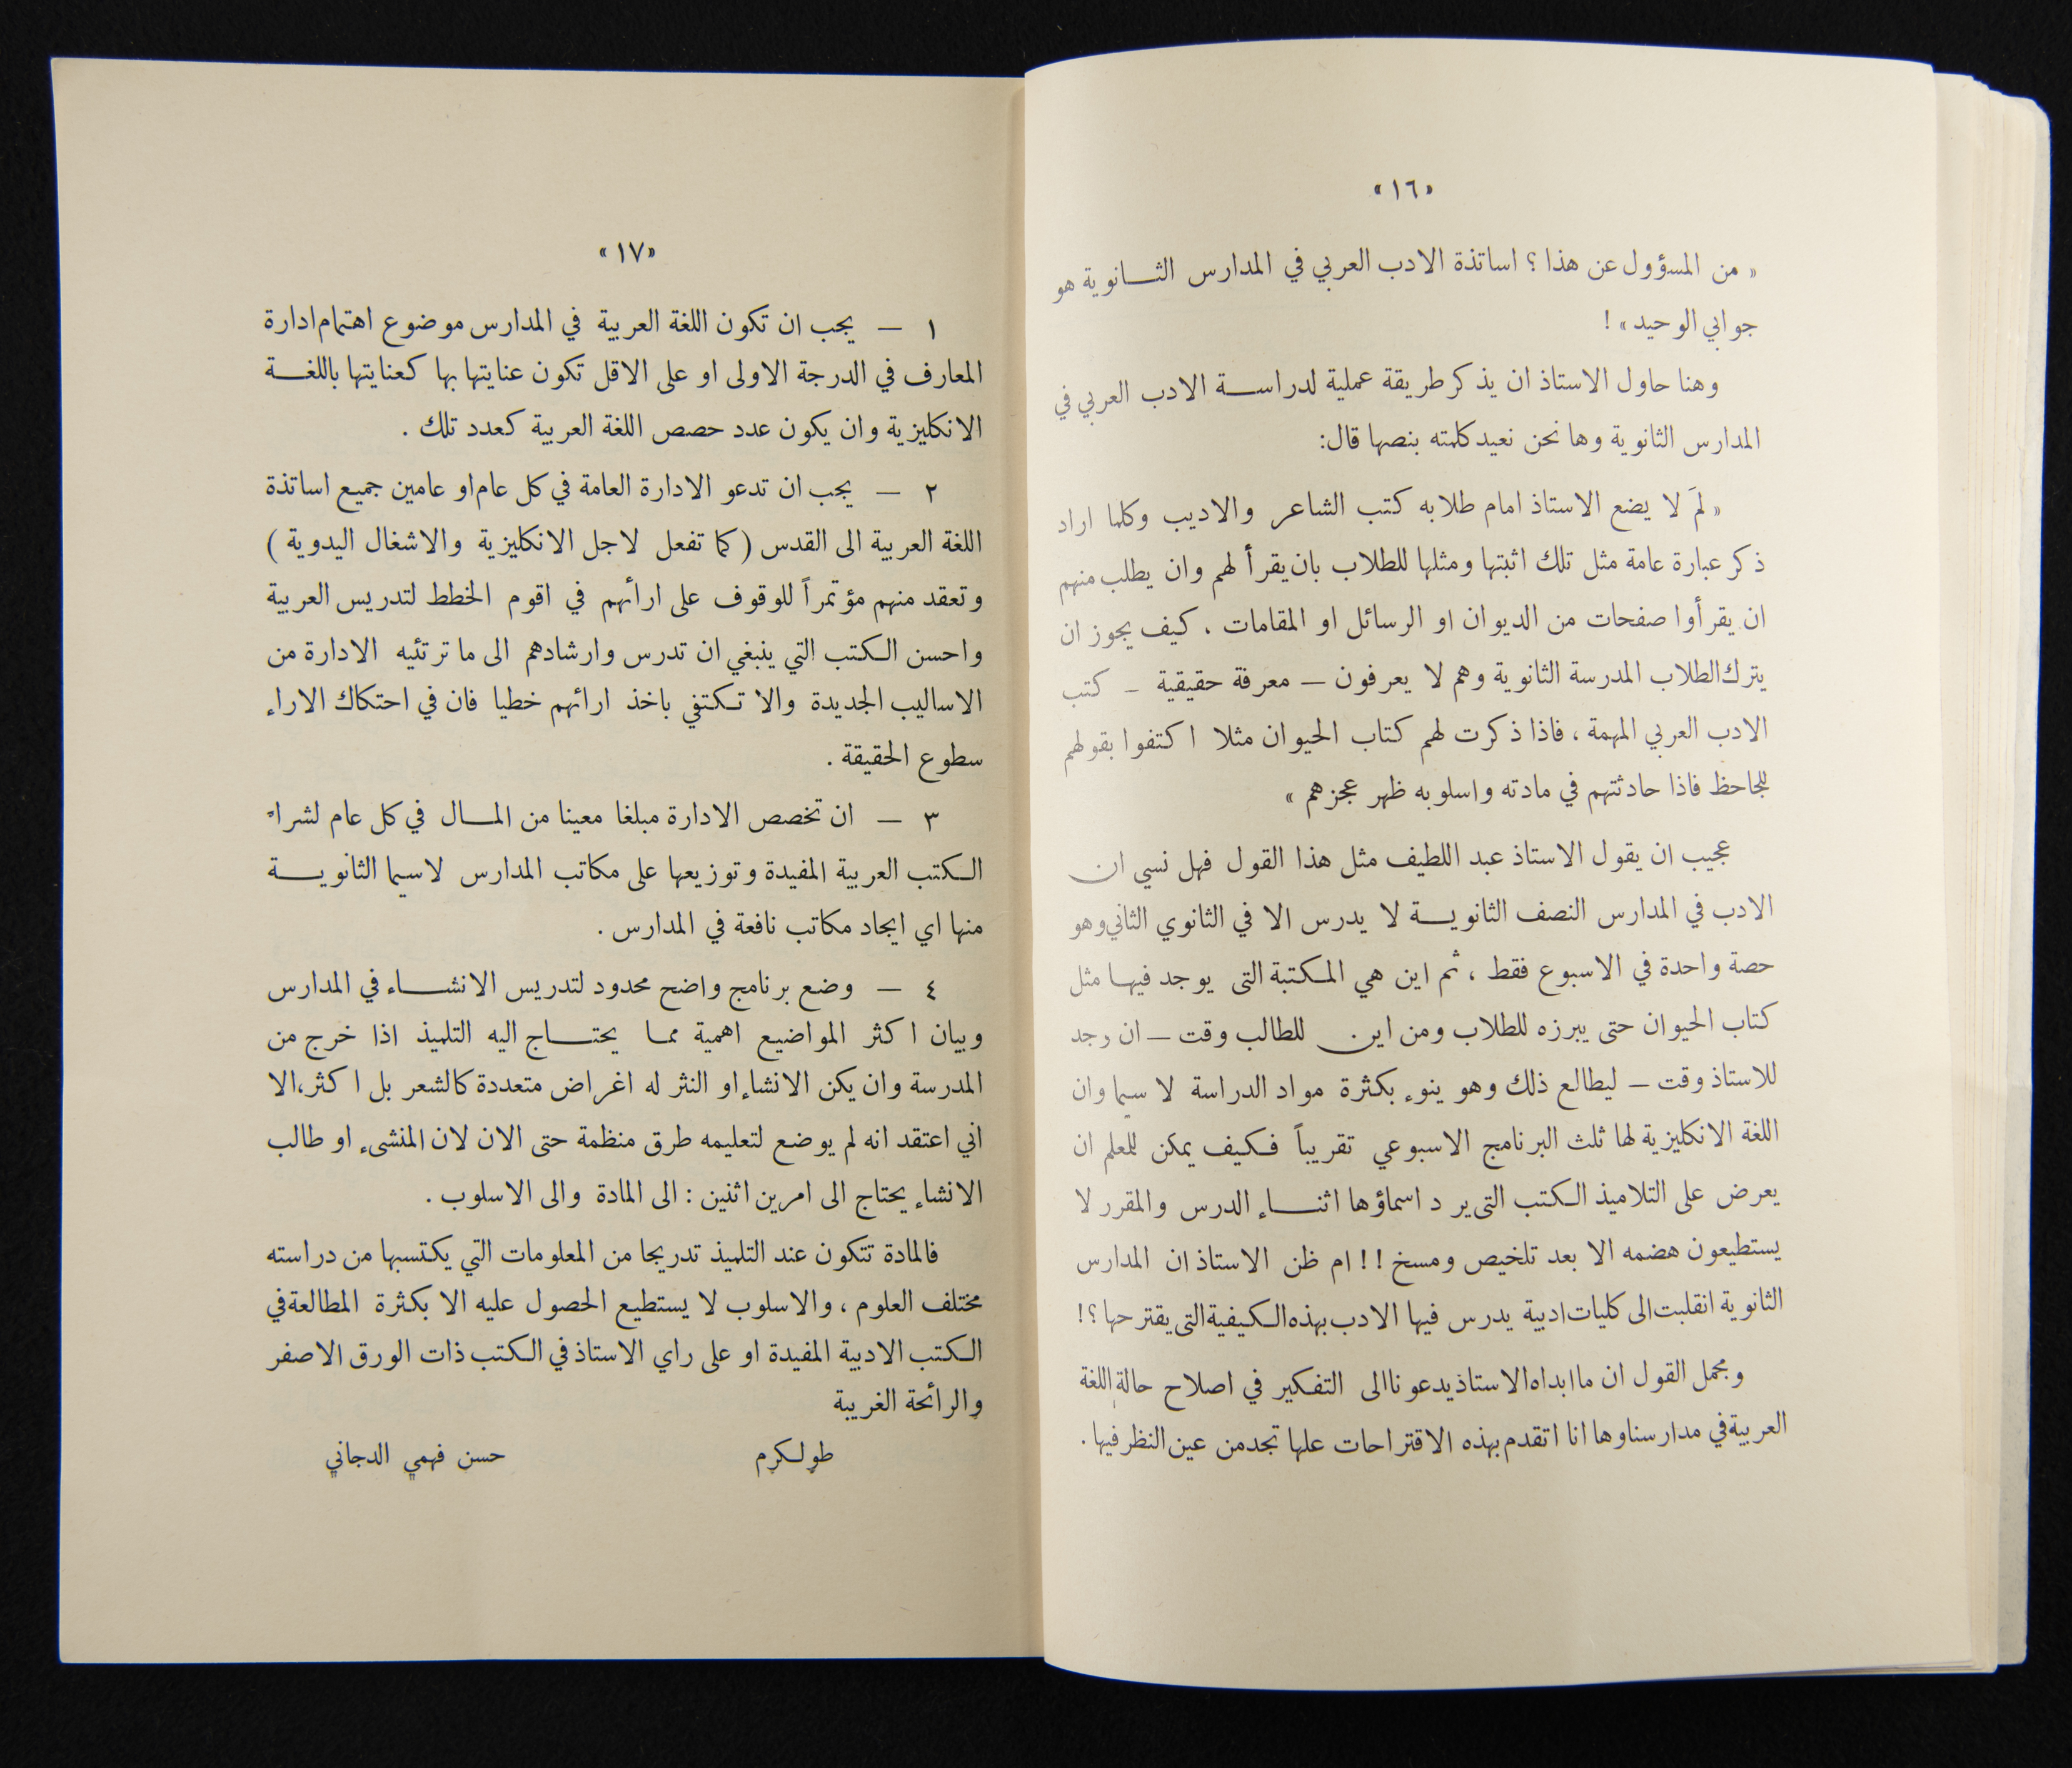 «١٦»
« من المسؤول عن هذا ؟ اساتذة الادب العربي في المدارس الثــانوية هو
جوابي الوحيد» !
وهنا حاول الاستاذ ان يذكر طريقة عملية لدراســة الادب العربي في
المدارس الثانوية وها نحن نعيد كلمته بنصها قال:
« لمَ لا يضع الاستاذ امام طلابه كتب الشاعر والاديب وكلما اراد
ذكر عبارة عامة مثل تلك اثبتها ومثلها للطلاب بان يقرأ لهم وان يطلب منهم
ان يقرأوا صفحات من الديوان او الرسائل او المقامات ، كيف يجوز ان
يترك الطلاب المدرسة الثانوية وهم لا يعرفون — معرفة حقيقية - كتب
الادب العربي المهمة ، فاذا ذكرت لهم كتاب الحيوان مثلا اكتفوا بقولهم
للجاحظ فاذا حادثتهم في مادته واسلوبه ظهر عجزهم »
عجيب ان يقول الاستاذ عبد اللطيف مثل هذا القول فهل نسي ان
الادب في المدارس النصف الثانويــة لا يدرس الا في الثانوي الثاني وهو
حصة واحدة في الاسبوع فقط ، ثم اين هي المكتبة التى يوجد فيهـا مثل
كتاب الحيوان حتى يبرزه للطلاب ومن اين للطالب وقت — ان وجد
للاستاذ وقت — ليطالع ذلك وهو ينوء بكثرة مواد الدراسة لا سيما وان
اللغة الانكليزية لها ثلث البرنامج الاسبوعي تقريباً فكيف يمكن للمعلم ان
يعرض على التلاميذ الكتب التى ير د اسماؤها اثنــاء الدرس والمقرر لا
يستطيعون هضمه الا بعد تلخيص ومسخ !! ام ظن الاستاذ ان المدارس
الثانوية انقلبت الى كليات ادبية يدرس فيها الادب بهذه الكيفية التى يقترحها ؟!
ومجمل القول ان ما ابداه الاستاذ يدعونا الى التفكير في اصلاح حالة اللغة
العربية في مدارسنا وها انا اتقدم بهذه الاقتراحات علها تجد من عين النظر فيها .
«١٧»
١ — يجب ان تكون اللغة العربية في المدارس موضوع اهتمام ادارة
المعارف في الدرجة الاولى او على الاقل تكون عنايتها بها كعنايتها باللغــة
الانكليزية وان يكون عدد حصص اللغة العربية كعدد تلك .
٢ — يجب ان تدعو الادارة العامة في كل عام او عامين جميع اساتذة
اللغة العربية الى القدس ( كما تفعل لاجل الانكليزية والاشغال اليدوية )
وتعقد منهم مؤتمراً للوقوف على ارائهم في اقوم الخطط لتدريس العربية
واحسن الكتب التي ينبغي ان تدرس وارشادهم الى ما ترتئيه الادارة من
الاساليب الجديدة والا تكتفي باخذ ارائهم خطيا فان في احتكاك الاراء
سطوع الحقيقة .
٣ — ان تخصص الادارة مبلغا معينا من المـال في كل عام لشراء
الكتب العربية المفيدة وتوزيعها على مكاتب المدارس لاسيما الثانويــة
منها اي ايجاد مكاتب نافعة في المدارس .
٤ — وضع برنامج واضح محدود لتدريس الانشــاء في المدارس
وبيان اكثر المواضيع اهمية ممـا يحتــاج اليه التلميذ اذا خرج من
المدرسة وان يكن الانشاء او النثر له اغراض متعددة كالشعر بل اكثر ،الا
اني اعتقد انه لم يوضع لتعليمه طرق منظمة حتى الان لان المنشىء او طالب
الانشاء يحتاج الى امرين اثنين : الى المادة والى الاسلوب .
فالمادة تتكون عند التلميذ تدريجا من المعلومات التي يكتسبها من دراسته
مختلف العلوم ، والاسلوب لا يستطيع الحصول عليه الا بكثرة المطالعة في
الكتب الادبية المفيدة او على راي الاستاذ في الكتب ذات الورق الاصفر
والرائحة الغريبة
طولكرم حسن فهمي الدجاني